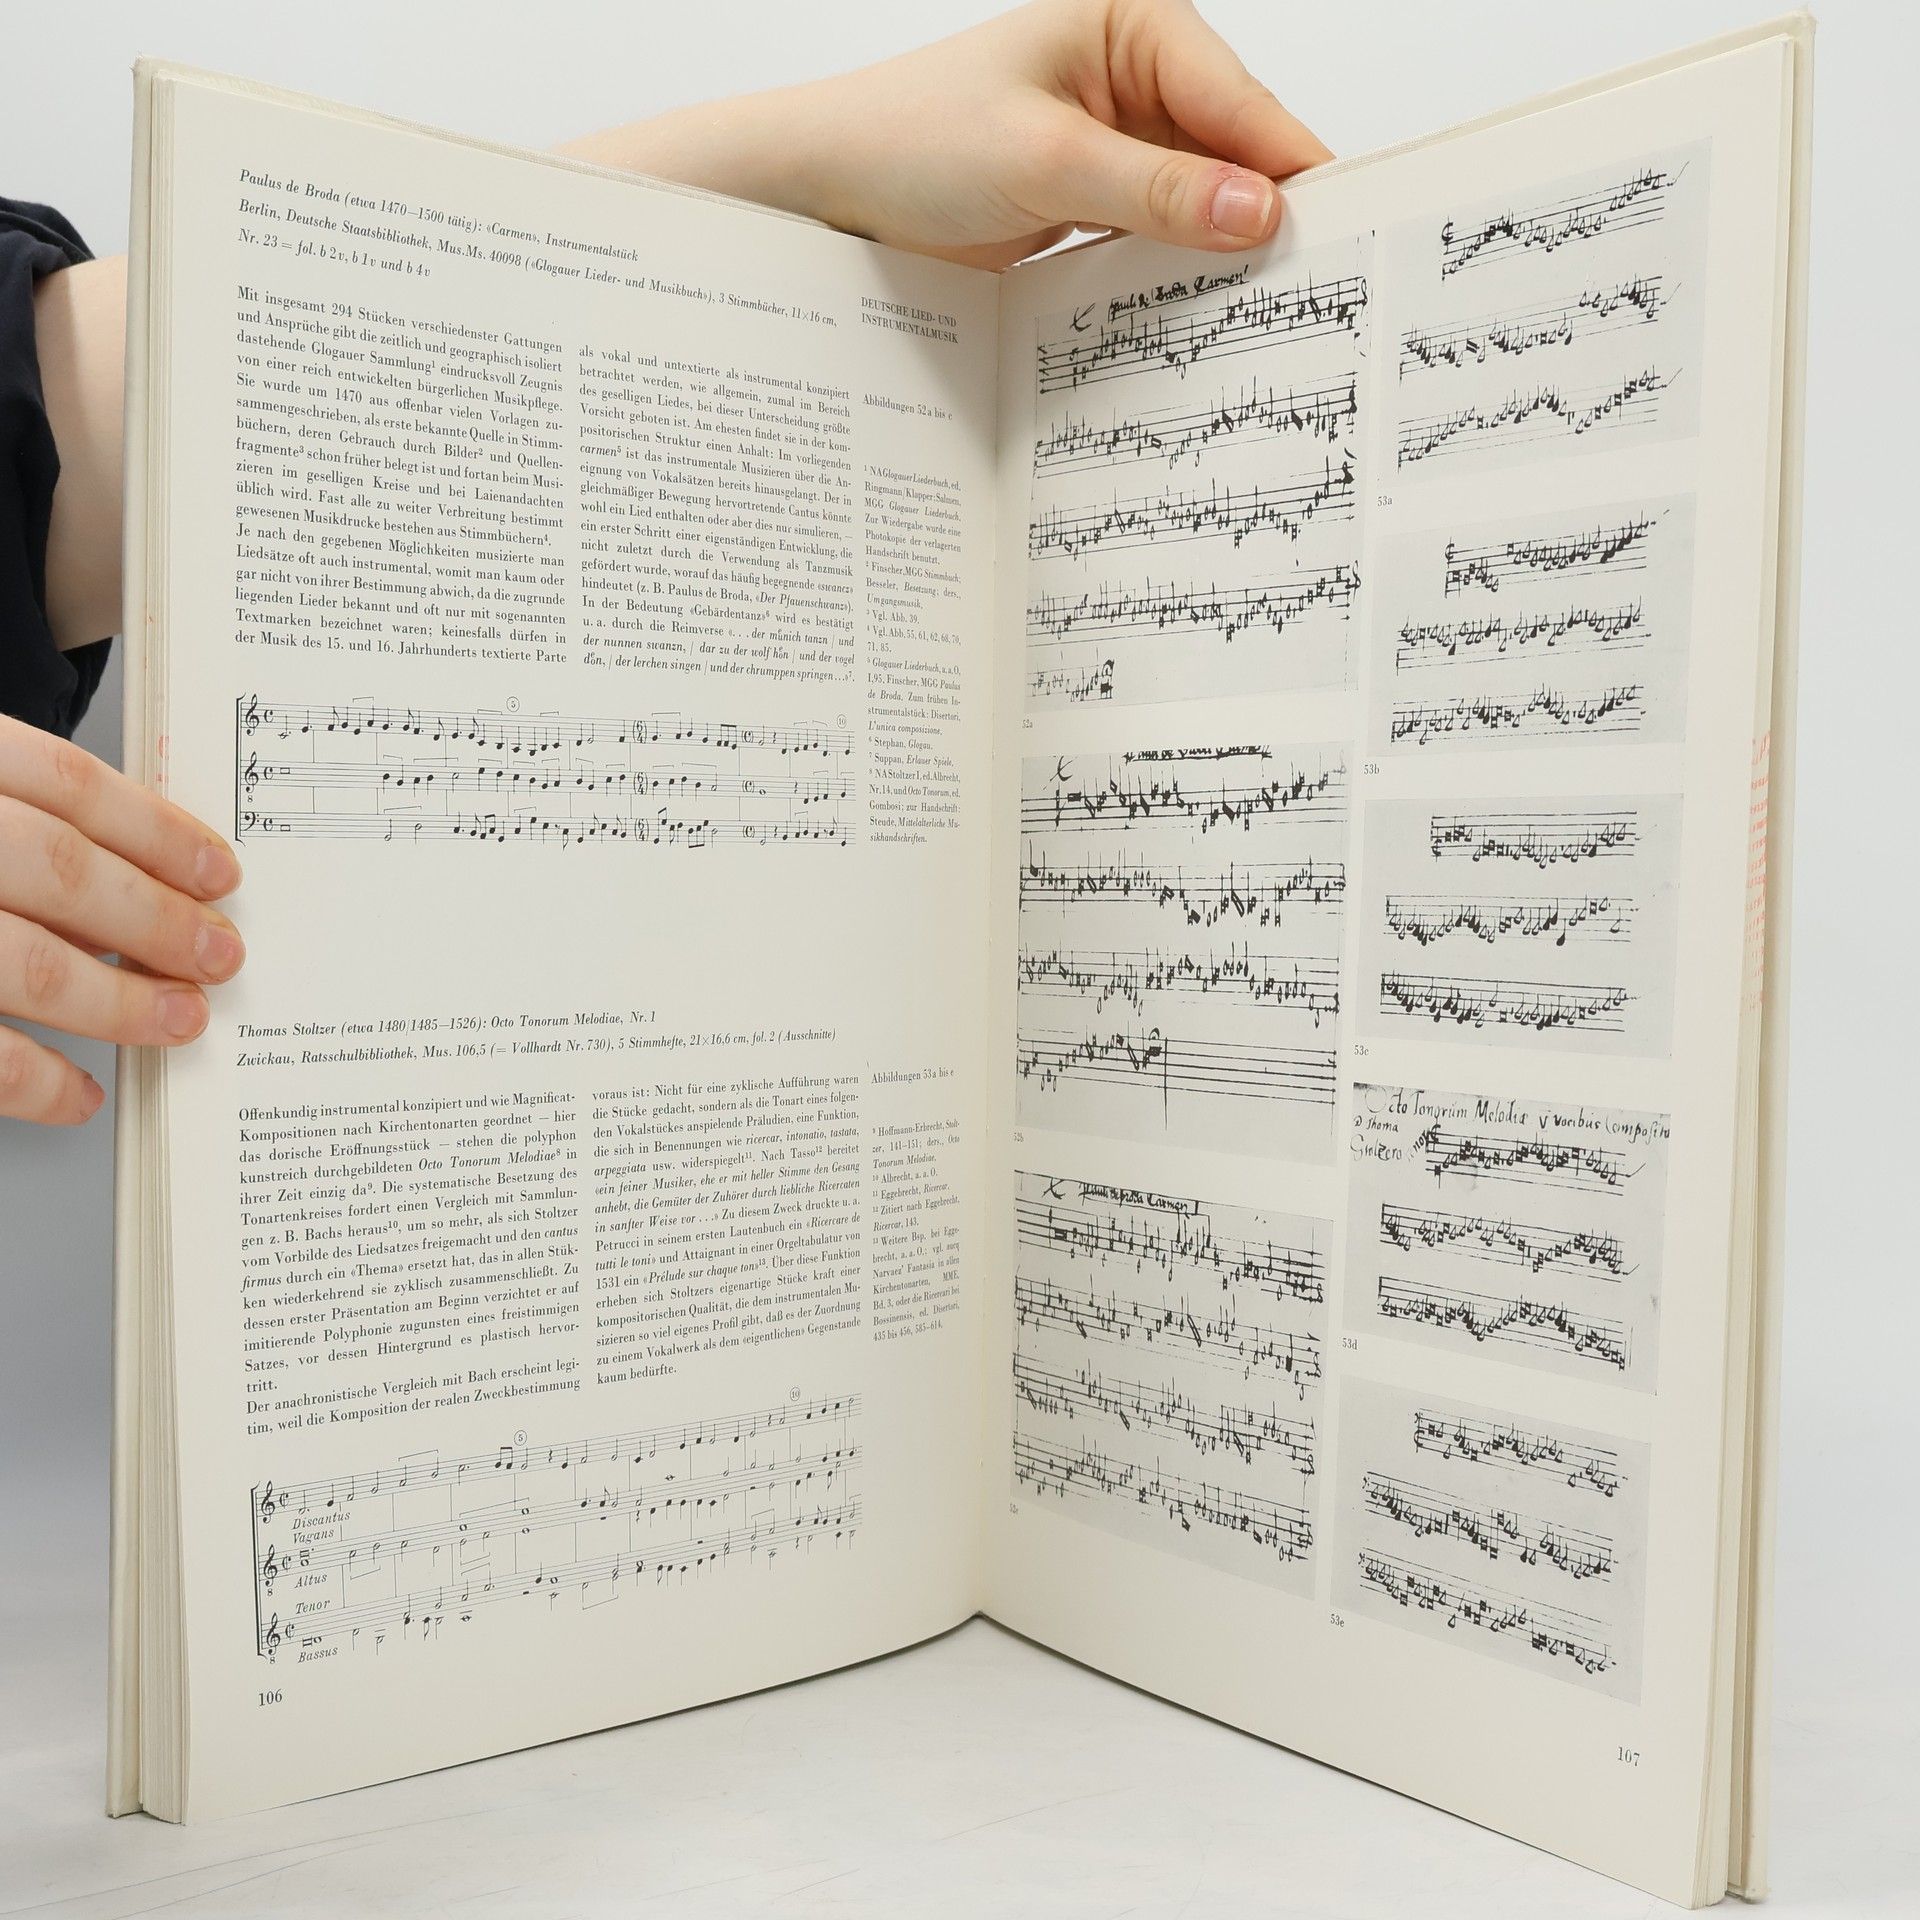 Paulus de Broda (etwa 1470–1500 tätig): «Carmen», Instrumentalstück
Berlin, Deutsche Staatsbibliothek, Mus.Ms. 40098 («Glogauer Lieder- und Musikbuch»), 3 Stimmbücher, 11×16 cm,
Nr. 23 = fol. b 2v, b 1v und b 4v
Mit insgesamt 294 Stücken verschiedenster Gattungen
und Ansprüche gibt die zeitlich und geographisch isoliert
dastehende Glogauer Sammlung¹ eindrucksvoll Zeugnis
von einer reich entwickelten bürgerlichen Musikpflege.
Sie wurde um 1470 aus offenbar vielen Vorlagen zu-
sammengeschrieben, als erste bekannte Quelle in Stimm-
büchern, deren Gebrauch durch Bilder² und Quellen-
fragmente³ schon früher belegt ist und fortan beim Musi-
zieren im geselligen Kreise und bei Laienandachten
üblich wird. Fast alle zu weiter Verbreitung bestimmt
gewesenen Musikdrucke bestehen aus Stimmbüchern⁴.
Je nach den gegebenen Möglichkeiten musizierte man
Liedsätze oft auch instrumental, womit man kaum oder
gar nicht von ihrer Bestimmung abwich, da die zugrunde
liegenden Lieder bekannt und oft nur mit sogenannten
Textmarken bezeichnet waren; keinesfalls dürfen in
der Musik des 15. und 16. Jahrhunderts textierte Parte
als vokal und untextierte als instrumental konzipiert
betrachtet werden, wie allgemein, zumal im Bereich
des geselligen Liedes, bei dieser Unterscheidung größte
Vorsicht geboten ist. Am ehesten findet sie in der kom-
positorischen Struktur einen Anhalt: Im vorliegenden
carmen⁵ ist das instrumentale Musizieren über die An-
eignung von Vokalsätzen bereits hinausgelangt. Der in
gleichmäßiger Bewegung hervortretende Cantus könnte
wohl ein Lied enthalten oder aber dies nur simulieren, –
ein erster Schritt einer eigenständigen Entwicklung, die
nicht zuletzt durch die Verwendung als Tanzmusik
gefördert wurde, worauf das häufig begegnende «swancz»
hindeutet (z. B. Paulus de Broda, «Der Pfauenschwanz»).
In der Bedeutung «Gebärdentanz»⁶ wird es bestätigt
u. a. durch die Reimverse «. . . der münich tanzn | und
der nunnen swanzn, | dar zu der wolf hön | und der vogel
dön, | der lerchen singen | und der chrumppen springen ...»⁷.
DEUTSCHE LIED- UND
INSTRUMENTALMUSIK
Abbildungen 52a bis c
¹ NA Glogauer Liederbuch, ed.
Ringmann/Klapper; Salmen,
MGG Glogauer Liederbuch.
Zur Wiedergabe wurde eine
Photokopie der verlagerten
Handschrift benutzt.
² Finscher, MGG Stimmbuch;
Besseler, Besetzung; ders.,
Umgangsmusik.
³ Vgl. Abb. 39.
⁴ Vgl. Abb. 55, 61, 62, 68, 70,
71, 85.
⁵ Glogauer Liederbuch, a. a. O.
I,95. Finscher, MGG Paulus
de Broda. Zum frühen In-
strumentalstück: Disertori,
L'unica composizione.
⁶ Stephan, Glogau.
⁷ Suppan, Erlauer Spiele.
⁸ NA Stoltzer I, ed. Albrecht,
Nr. 14, und Octo Tonorum, ed.
Gombosi; zur Handschrift:
Steude, Mittelalterliche Mu-
sikhandschriften.
5
10
Thomas Stoltzer (etwa 1480/1485–1526): Octo Tonorum Melodiae, Nr. 1
Zwickau, Ratsschulbibliothek, Mus. 106,5 (= Vollhardt Nr. 730), 5 Stimmhefte, 21×16,6 cm, fol. 2 (Ausschnitte)
Offenkundig instrumental konzipiert und wie Magnificat-
Kompositionen nach Kirchentonarten geordnet – hier
das dorische Eröffnungsstück – stehen die polyphon
kunstreich durchgebildeten Octo Tonorum Melodiae⁸ in
ihrer Zeit einzig da⁹. Die systematische Besetzung des
Tonartenkreises fordert einen Vergleich mit Sammlun-
gen z. B. Bachs heraus¹⁰, um so mehr, als sich Stoltzer
vom Vorbilde des Liedsatzes freigemacht und den cantus
firmus durch ein «Thema» ersetzt hat, das in allen Stük-
ken wiederkehrend sie zyklisch zusammenschließt. Zu
dessen erster Präsentation am Beginn verzichtet er auf
imitierende Polyphonie zugunsten eines freistimmigen
Satzes, vor dessen Hintergrund es plastisch hervor-
tritt.
Der anachronistische Vergleich mit Bach erscheint legi-
tim, weil die Komposition der realen Zweckbestimmung
voraus ist: Nicht für eine zyklische Aufführung waren
die Stücke gedacht, sondern als die Tonart eines folgen-
den Vokalstückes anspielende Präludien, eine Funktion,
die sich in Benennungen wie ricercar, intonatio, tastata,
arpeggiata usw. widerspiegelt¹¹. Nach Tasso¹² bereitet
«ein feiner Musiker, ehe er mit heller Stimme den Gesang
anhebt, die Gemüter der Zuhörer durch liebliche Ricercaten
in sanfter Weise vor . . .» Zu diesem Zweck druckte u. a.
Petrucci in seinem ersten Lautenbuch ein «Ricercare de
tutti le toni» und Attaignant in einer Orgeltabulatur von
1531 ein «Prélude sur chaque ton»¹³. Über diese Funktion
erheben sich Stoltzers eigenartige Stücke kraft einer
kompositorischen Qualität, die dem instrumentalen Mu-
sizieren so viel eigenes Profil gibt, daß es der Zuordnung
zu einem Vokalwerk als dem «eigentlichen» Gegenstande
kaum bedürfte.
Abbildungen 53a bis e
⁹ Hoffmann-Erbrecht, Stolt-
zer, 141–151; ders., Octo
Tonorum Melodiae.
¹⁰ Albrecht, a. a. O.
¹¹ Eggebrecht, Ricercar.
¹² Zitiert nach Eggebrecht,
Ricercar, 143.
¹³ Weitere Bsp. bei Egge-
brecht, a. a. O.; vgl. auch
Narvaez' Fantasia in allen
Kirchentonarten, MME,
Bd. 3, oder die Ricercari bei
Bossinensis, ed. Disertori,
435 bis 456, 585–614.
5
10
Discantus
Vagans
Altus
Tenor
Bassus
106
Pauli de Broda Carmen
52a
52b
Pauli de broda Carmen
53a
53b
53c
Octo Tonorum Melodiæ V vocibus Composito
D Thoma
Stolzero
53d
53e
107